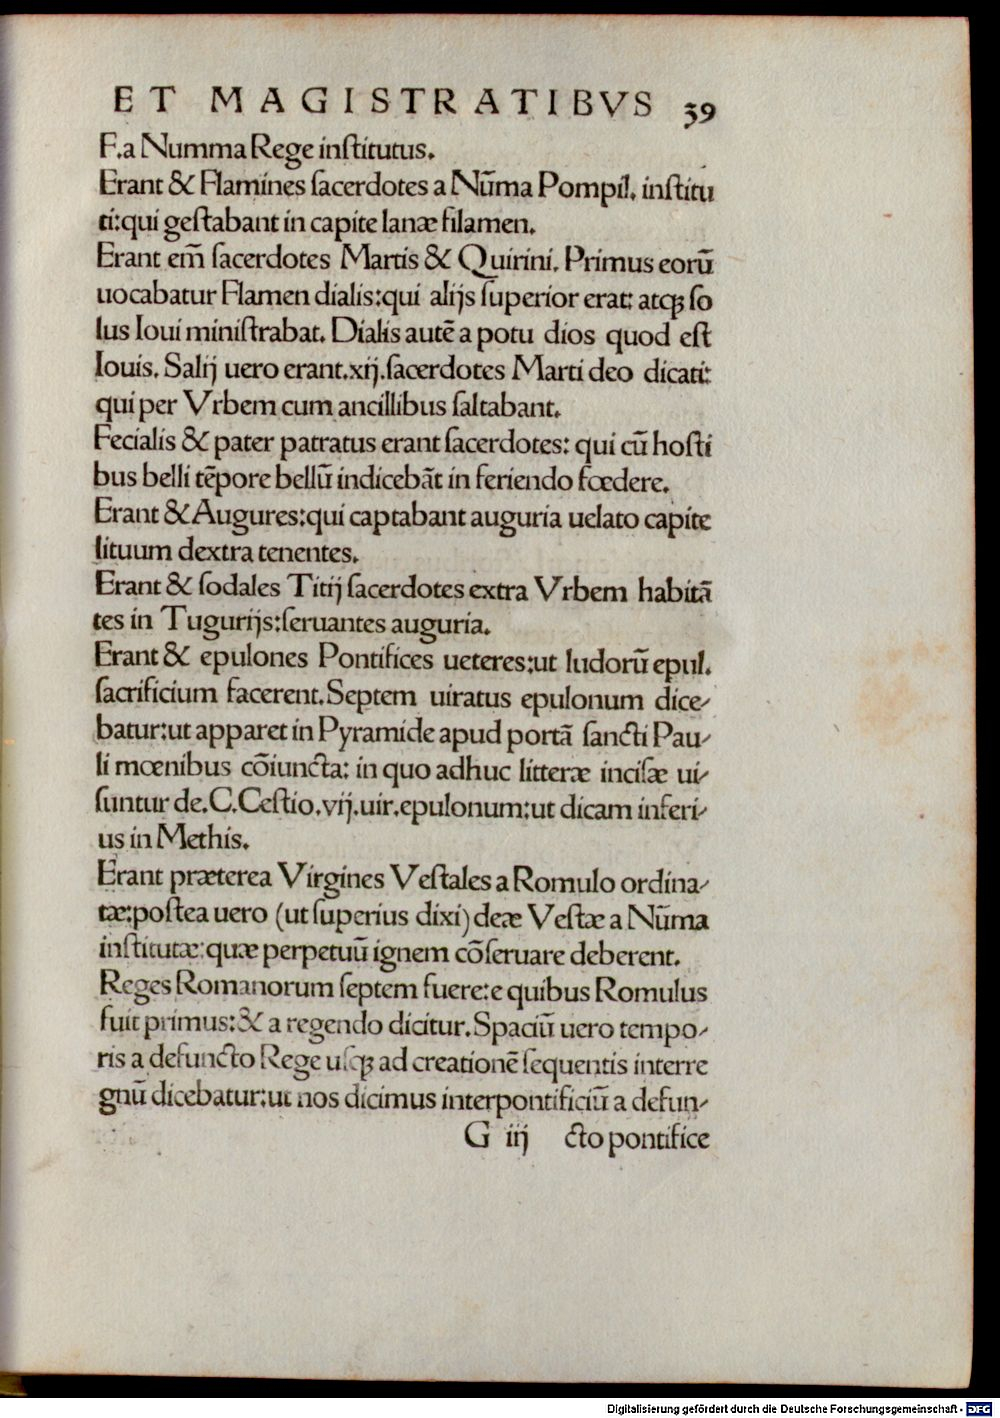 ET MAGISTRATIBVS 39
F.a Numma Rege inſtitutus.
Erant & Flamines ſacerdotes a Nūma Pompil. inſtitu
ti:qui geſtabant in capite lanæ filamen.
Erant em̄ ſacerdotes Martis & Quirini. Primus eorū
uocabatur Flamen dialis:qui alijs ſuperior erat: atqꝫ ſo
lus Ioui miniſtrabat. Dialis autē a potu dios quod eſt
Iouis. Salij uero erant.xij.ſacerdotes Marti deo dicati:
qui per Vrbem cum ancillibus ſaltabant.
Fecialis & pater patratus erant ſacerdotes: qui cū hoſti
bus belli tēpore bellū indicebāt in feriendo fœdere.
Erant & Augures:qui captabant auguria uelato capite
lituum dextra tenentes.
Erant & ſodales Titij ſacerdotes extra Vrbem habitā
tes in Tugurijs:ſeruantes auguria.
Erant & epulones Pontifices ueteres:ut ludorū epul.
ſacrificium facerent.Septem uiratus epulonum dice-
batur:ut apparet in Pyramide apud portā ſancti Pau-
li mœnibus cōiuncta: in quo adhuc litteræ inciſæ ui-
ſuntur de.C.Ceſtio.vij.uir.epulonum:ut dicam inferi-
us in Methis.
Erant præterea Virgines Veſtales a Romulo ordina-
tæ:poſtea uero (ut ſuperius dixi) deæ Veſtæ a Nūma
inſtitutæ:quæ perpetuū ignem cōſeruare deberent.
Reges Romanorum ſeptem fuere:e quibus Romulus
fuit primus:& a regendo dicitur.Spaciū uero tempo-
ris a defuncto Rege uſqꝫ ad creationē ſequentis interre
gnū dicebatur:ut nos dicimus interpontificiū a defun-
G iij cto pontifice
Digitalisierung gefördert durch die Deutsche Forschungsgemeinschaft - DFG